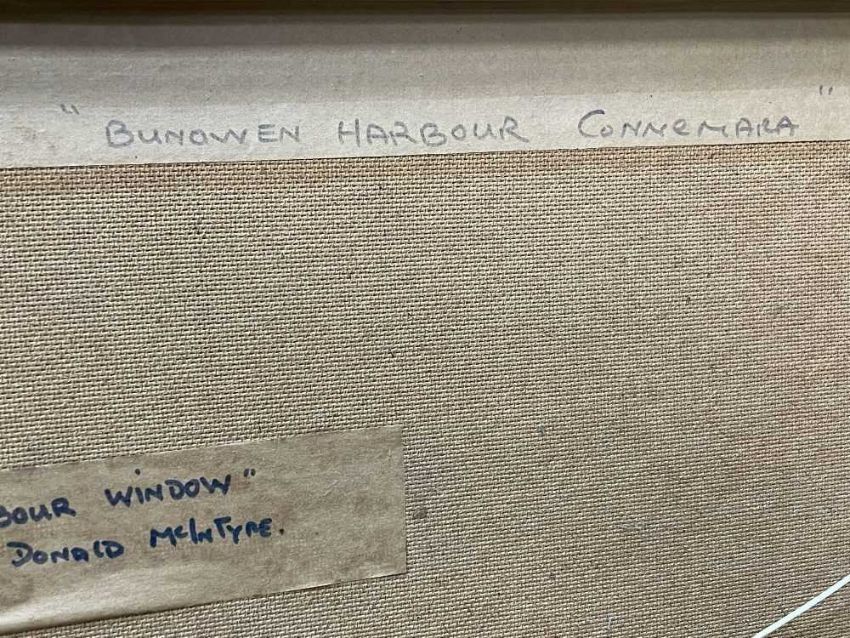 " BUNOWEN HARBOUR CONNEMARA "
BOUR WINDOW"
DONALD McINTYRE.